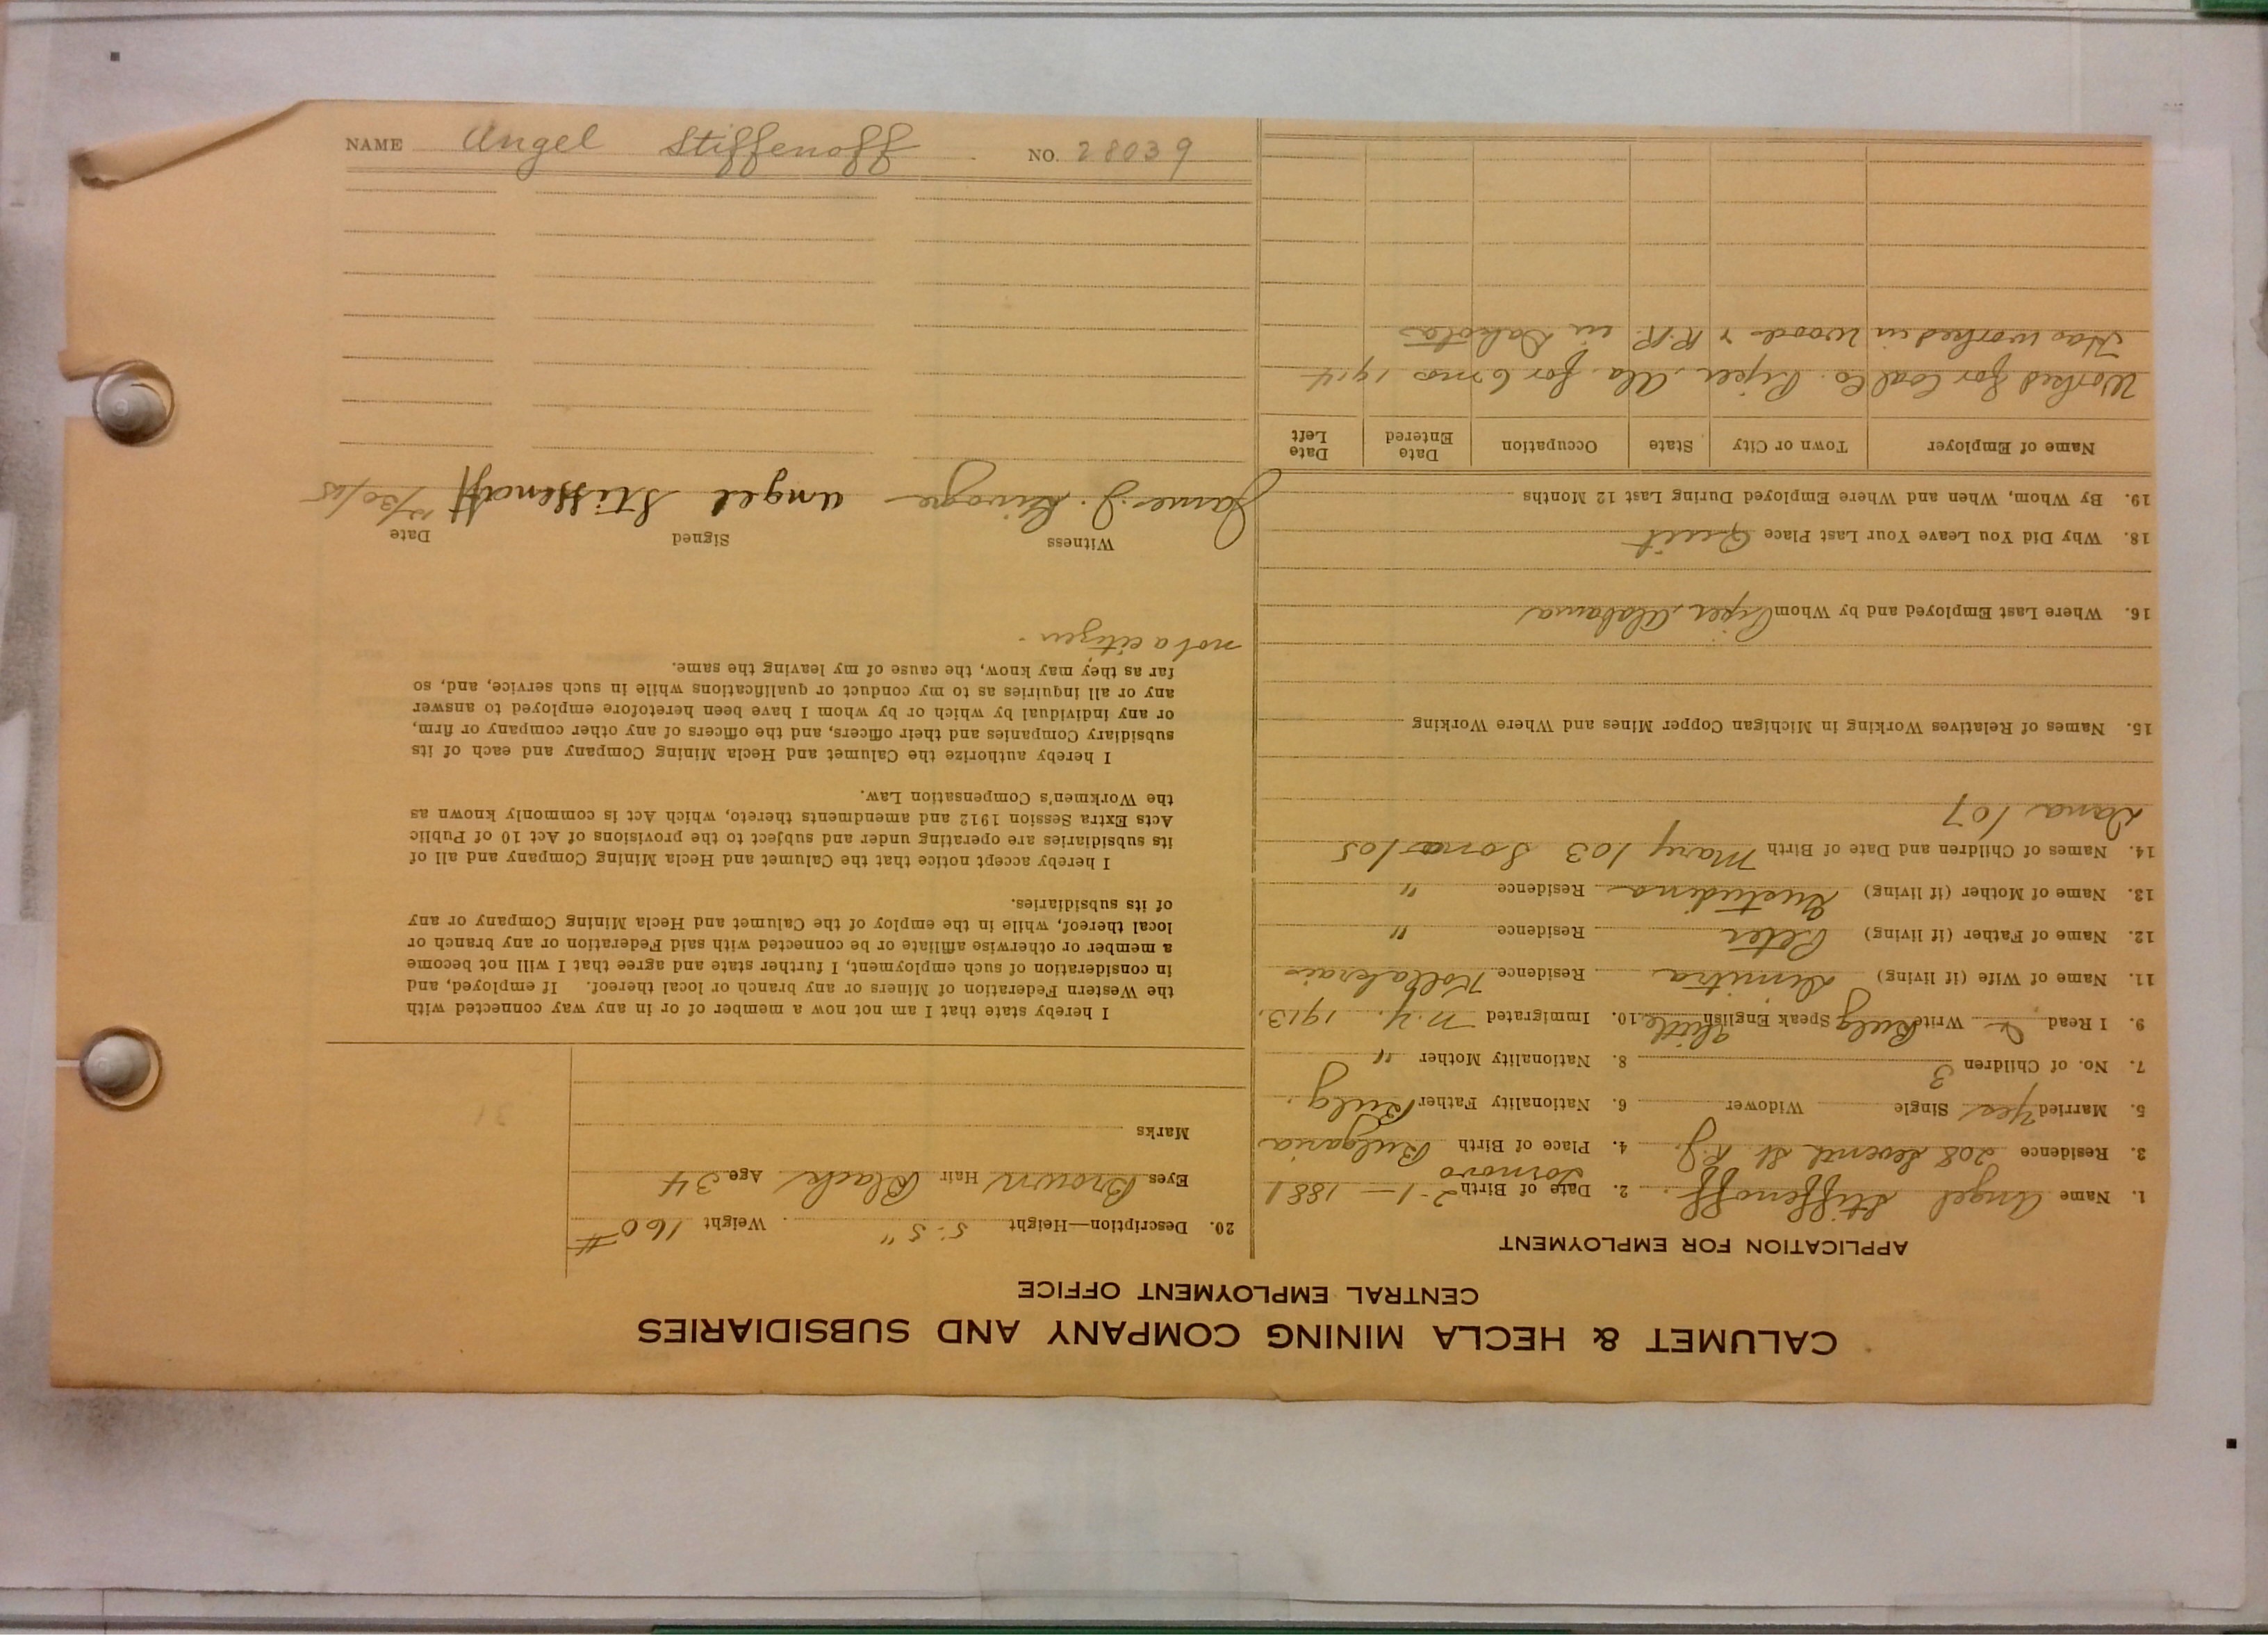 NAME Angel Stiffenoff NO. 28039
CALUMET & HECLA MINING COMPANY AND SUBSIDIARIES
CENTRAL EMPLOYMENT OFFICE
APPLICATION FOR EMPLOYMENT
1. Name Angel Stiffenoff 2. Date of Birth 2-1-1881
Tornovo
3. Residence 208 Seventh St. R.J. 4. Place of Birth Bulgaria
5. Married Yes Single Widower 6. Nationality Father Bulg.
7. No. of Children 3 8. Nationality Mother "
9. I Read & Write Bulg Speak English little 10. Immigrated N.Y. 1913.
11. Name of Wife (if living) Dimitra Residence
12. Name of Father (if living) Peter Residence "
13. Name of Mother (if living) Residence "
14. Names of Children and Date of Birth Mary 103 Sona 105
Dana 107
15. Names of Relatives Working in Michigan Copper Mines and Where Working
16. Where Last Employed and by Whom Piper Alabama
18. Why Did You Leave Your Last Place Quit
19. By Whom, When and Where Employed During Last 12 Months
Name of Employer Town or City State Occupation Date Entered Date Left
Worked for Coal Co. Piper Ala. for 6 mos 1914
Has worked in woods & R.R. in Dakota
20. Description—Height 5-5" Weight 160#
Eyes Brown Hair Black Age 34
Marks
I hereby state that I am not now a member of or in any way connected with
the Western Federation of Miners or any branch or local thereof. If employed, and
in consideration of such employment, I further state and agree that I will not become
a member or otherwise affiliate or be connected with said Federation or any branch or
local thereof, while in the employ of the Calumet and Hecla Mining Company or any
of its subsidiaries.
I hereby accept notice that the Calumet and Hecla Mining Company and all of
its subsidiaries are operating under and subject to the provisions of Act 10 of Public
Acts Extra Session 1912 and amendments thereto, which Act is commonly known as
the Workmen's Compensation Law.
I hereby authorize the Calumet and Hecla Mining Company and each of its
subsidiary Companies and their officers, and the officers of any other company or firm,
or any individual by which or by whom I have been heretofore employed to answer
any or all inquiries as to my conduct or qualifications while in such service, and, so
far as they may know, the cause of my leaving the same.
not a citizen.
Witness Signed Date
James J. Angel Stiffenoff